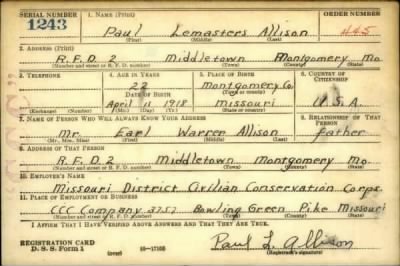 SERIAL NUMBER 1. NAME (Print) ORDER NUMBER
1243 Paul Lemasters Allison 445
(First) (Middle) (Last)
2. ADDRESS (Print)
R.F.D. 2 Middletown Montgomery Mo
(Number and street or R. F. D. number) (Town) (County) (State)
3. TELEPHONE 4. AGE IN YEARS 5. PLACE OF BIRTH 6. COUNTRY OF CITIZENSHIP
22 Montgomery Co.
DATE OF BIRTH (Town or county)
April 11 1918 Missouri U.S.A.
(Exchange) (Number) (Mo.) (Day) (Yr.) (State or country)
7. NAME OF PERSON WHO WILL ALWAYS KNOW YOUR ADDRESS 8. RELATIONSHIP OF THAT PERSON
Mr. Earl Warren Allison father
(Mr., Mrs., Miss) (First) (Middle) (Last)
9. ADDRESS OF THAT PERSON
R.F.D. 2 Middletown Montgomery Mo.
(Number and street or R. F. D. number) (Town) (County) (State)
10. EMPLOYER'S NAME
Missouri District Civilian Conservation Corps.
11. PLACE OF EMPLOYMENT OR BUSINESS
CCC Company 3757 Bowling Green Pike Missouri
(Number and street or R. F. D. number) (Town) (County) (State)
I AFFIRM THAT I HAVE VERIFIED ABOVE ANSWERS AND THAT THEY ARE TRUE.
REGISTRATION CARD
D. S. S. Form 1 (over) 16—17105 Paul L. Allison
(Registrant's signature)